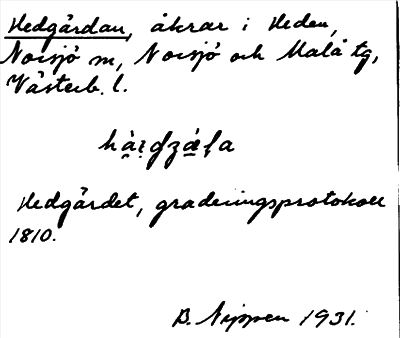 Hedgårdan, åkrar i Heden,
Norsjö m, Norsjö och Malå tg,
Västerb. l.
Hedgärdet, graderingsprotokoll
1810.
B. Nippen 1931.